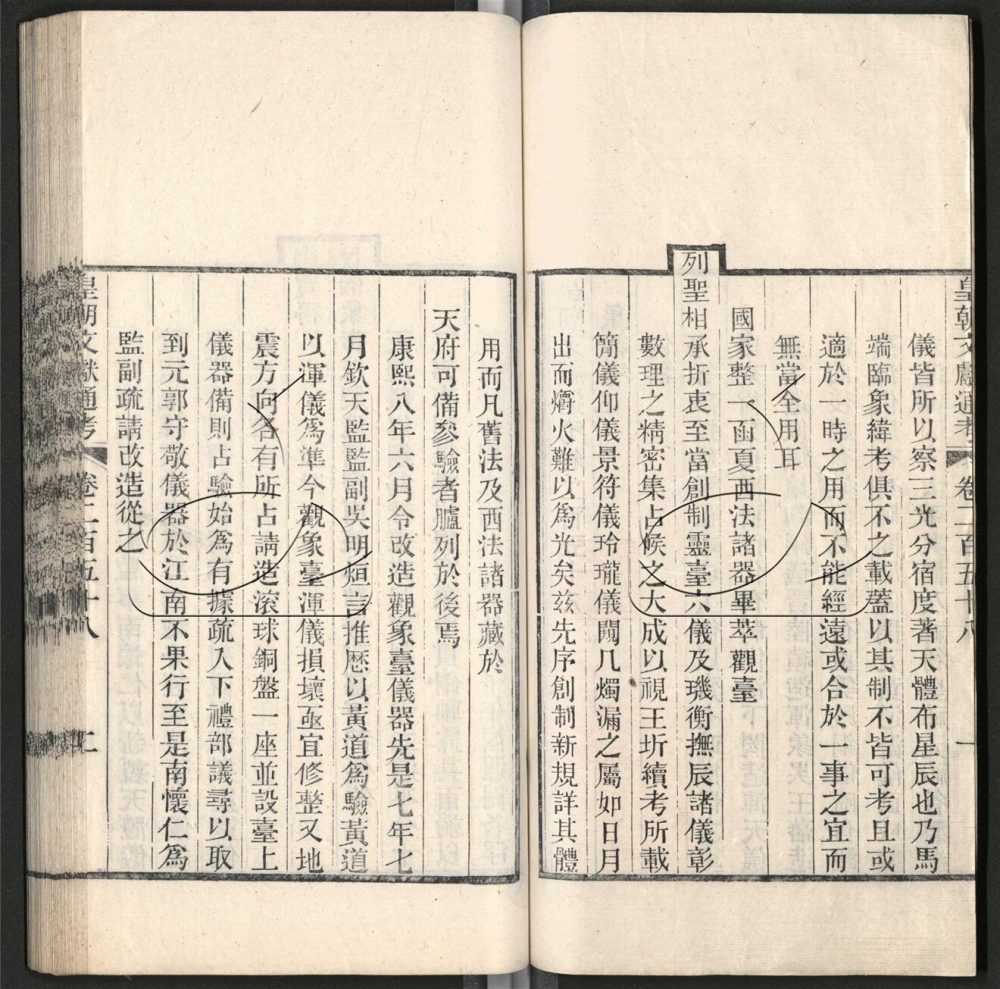 皇朝文獻通考 卷二百五十八 一
儀皆所以察三光分宿度著天體布星辰也乃馬
端臨象緯考俱不之載蓋以其制不皆可考且或
適於一時之用而不能經遠或合於一事之宜而
無當全用耳
國家整一函夏西法諸器畢萃觀臺
列聖相承折衷至當創制靈臺六儀及璣衡撫辰諸儀彰
數理之精密集占候之大成以視王圻續考所載
簡儀仰儀景符儀玲瓏儀闚几燭漏之屬如日月
出而爝火難以為光矣茲先序創制新規詳其體
用而凡舊法及西法諸器藏於
天府可備參驗者臚列於後焉
康熙八年六月令改造觀象臺儀器先是七年七
月欽天監監副吳明烜言推歷以黃道為驗黃道
以渾儀為準今觀象臺渾儀損壞亟宜修整又地
震方向各有所占請造滾球銅盤一座並設臺上
儀器備則占驗始為有據疏入下禮部議尋以取
到元郭守敬儀器於江南不果行至是南懷仁為
監副疏請改造從之
皇朝文獻通考 卷二百五十八 二